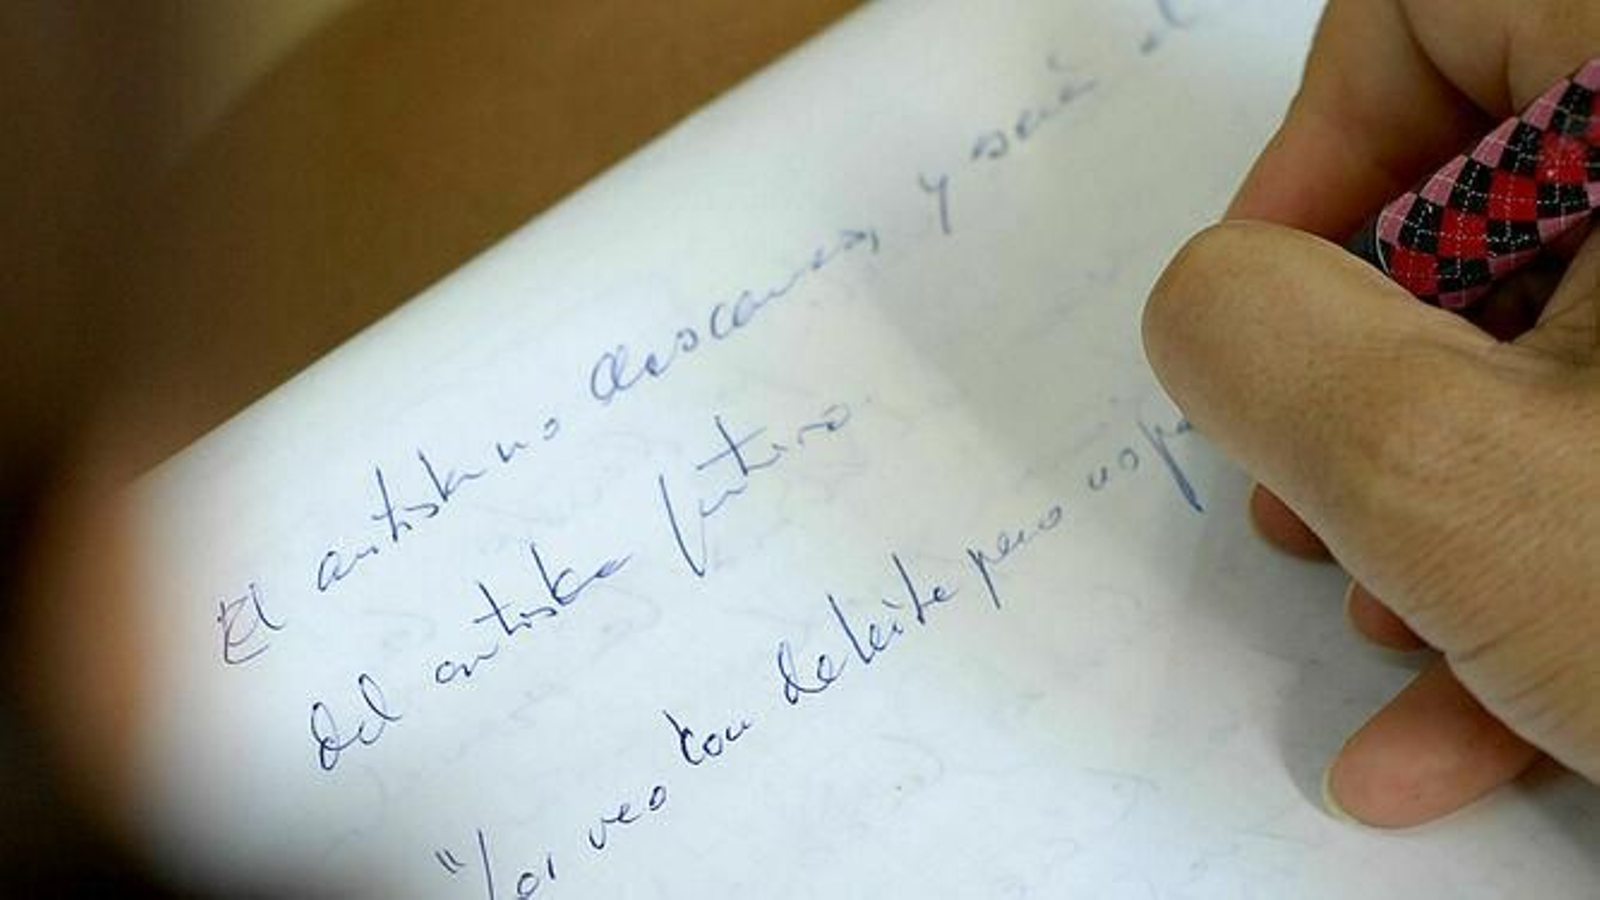 El artista no descansa, y será el
del artista futuro.
"Los veo con deleite pero no